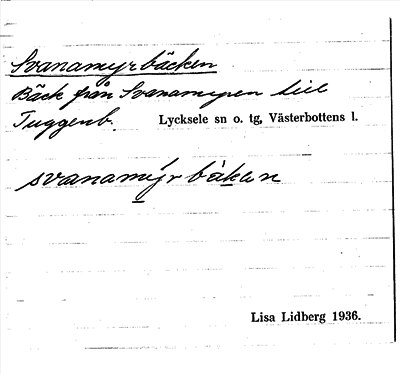 Svanamyrbäcken
Bäck från Svanamyren till
Tuggenb. Lycksele sn o. tg, Västerbottens l.
svanamýr bèken
Lisa Lidberg 1936.